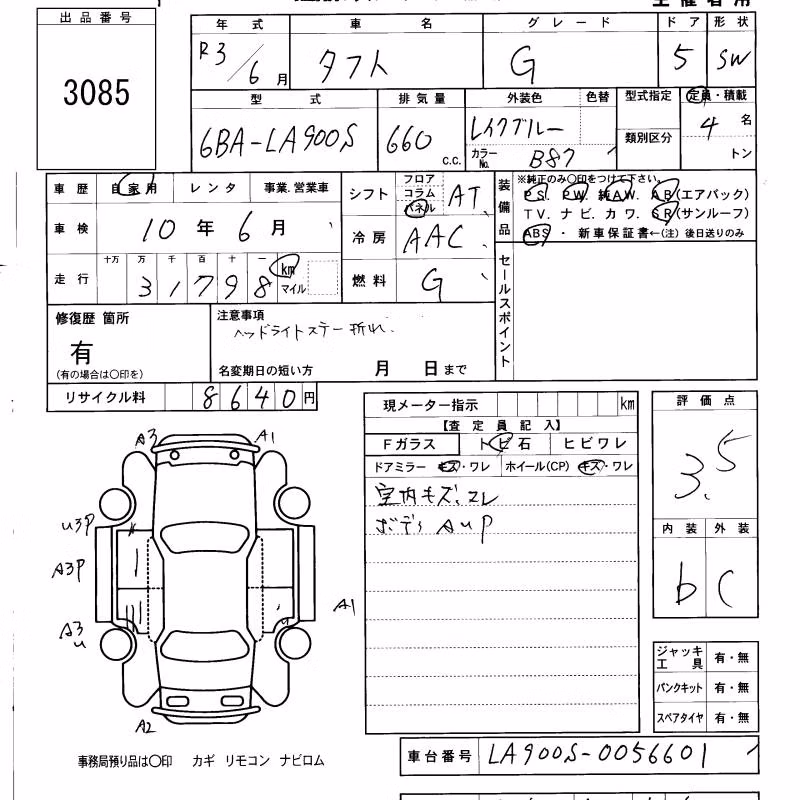 出品番号
3085
年式 車名 グレード ドア 形状
R3/6月 タフト G 5 SW
型式 排気量 外装色 色替 型式指定 定員・積載
6BA-LA900S 660 c.c. レイクブルー 類別区分 4 名
カラーNo. B87 トン
車歴 自家用 レンタ 事業.営業車
車検 10年6月
走行 十万 万 千 百 十 一
31798 km マイル
シフト フロア コラム パネル AT
冷房 AAC
燃料 G
装備品
※純正のみ〇印をつけて下さい。
PS. PW. 純AW. AB(エアバック)
TV. ナビ. カワ. SR(サンルーフ)
ABS ・ 新車保証書←(注) 後日送りのみ
セールスポイント
修復歴 箇所
有
(有の場合は〇印を)
注意事項
ヘッドライトステー折れ.
名変期日の短い方 月 日まで
リサイクル料 8640円
現メーター指示 km
【査定員記入】
Fガラス トビ石 ヒビワレ
ドアミラー キズ・ワレ ホイール(CP) キズ・ワレ
室内キズ、コレ
ボディ AUP
評価点
3.5
内装 外装
b C
ジャッキ工具 有・無
パンクキット 有・無
スペアタイヤ 有・無
A3 A1
U3P
A3P
A3
u
A1
A2
事務局預り品は〇印 カギ リモコン ナビロム
車台番号 LA900S-0056601